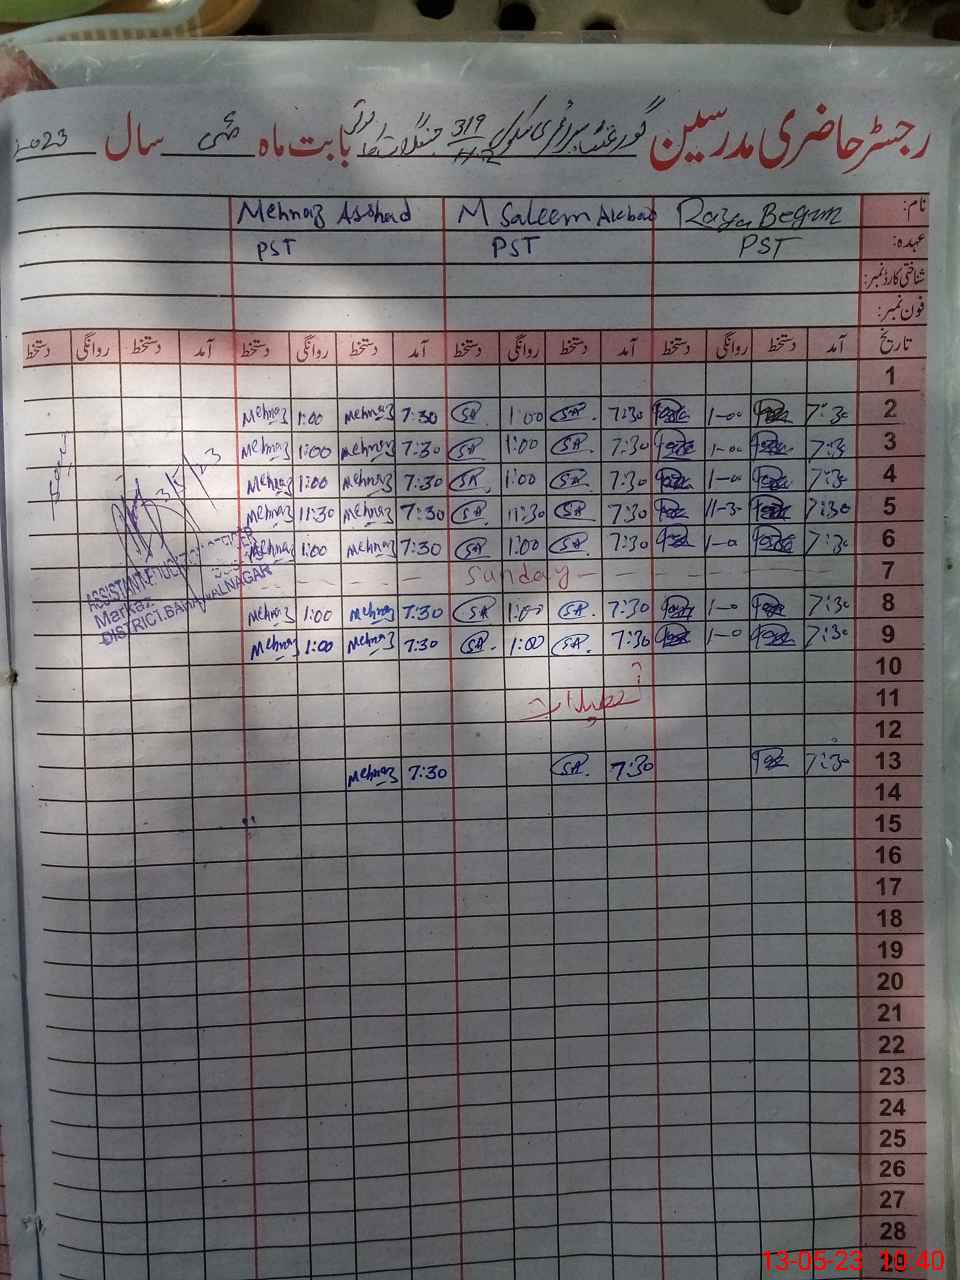 رجسٹر حاضری مدرسین گورنمنٹ پرائمری سکول 319 بابت ماہ مئی سال 2023
نام: Razia Begum M Saleem Akbar Mehnaz Asshad
عہدہ: PST PST PST
شناختی کارڈ نمبر:
فون نمبر:
تاریخ آمد دستخط روانگی دستخط آمد دستخط روانگی دستخط آمد دستخط روانگی دستخط آمد دستخط روانگی دستخط
1
2 7:30 1-00 7:30 SA 1:00 SA 7:30 Mehnaz 1:00 Mehnaz
3 7:30 1-00 7:30 SA 1:00 SA 7:30 Mehnaz 1:00 Mehnaz
4 7:30 1-00 7:30 SA 1:00 SA 7:30 Mehnaz 1:00 Mehnaz
5 7:30 11-30 7:30 SA 11:30 SA 7:30 Mehnaz 11:30 Mehnaz
6 7:30 1-0 7:30 SA 1:00 SA 7:30 Mehnaz 1:00 Mehnaz
7 Sunday
8 7:30 1-0 7:30 SA 1:00 SA 7:30 Mehnaz 1:00 Mehnaz
9 7:30 1-0 7:30 SA 1:00 SA 7:30 Mehnaz 1:00 Mehnaz
10
11 تعطیلات
12
13 7:30 7:30 SA 7:30 Mehnaz
14
15
16
17
18
19
20
21
22
23
24
25
26
27
28
29
3/5/23
ASSISTANT EDUCATION OFFICER
Markaz
DISTRICT.BAHAWALNAGAR
13-05-23 10:40